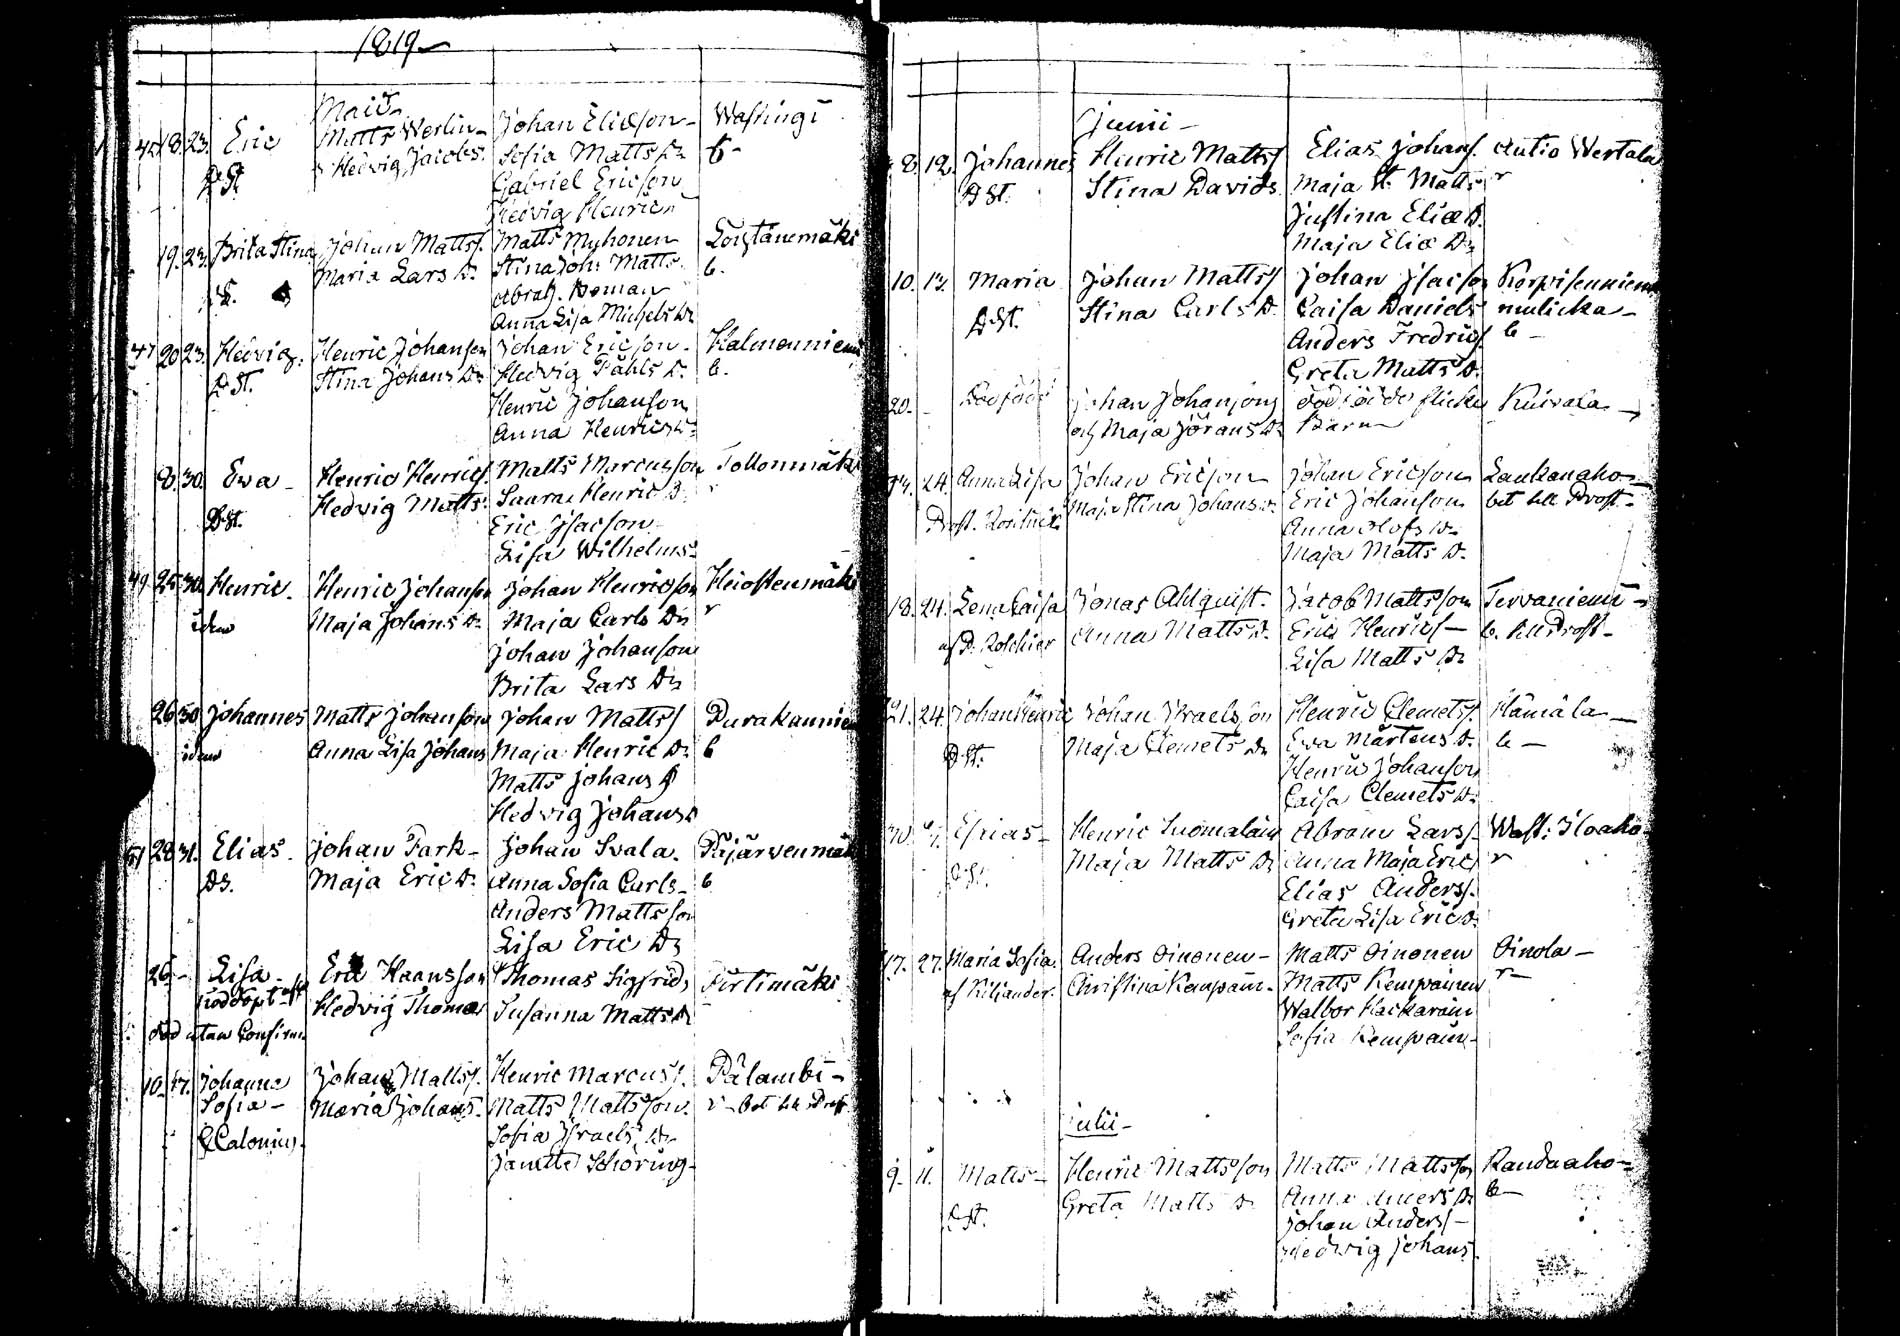 1819
Maij
45. 18. 23. Eric Matts Werlin Johan Eliæson Wassingi
D. St. Hedvig Jacobs. Sofia Matts Dr b
Gabriel Ericson
Hedvig Henrics
19. 23. Brita Stina Johan Matts. Matts Myhonen
Maria Lars D. Stina Joh: Matts. b.
Abrah. Boman
Anna Lisa Michels Dr
47 20 23. Hedvig. Henric Johanson Johan Ericson Halmenniemi
D. St. Stina Johans Dr Hedvig Påhls D. b.
Henric Johanson
Anna Henrics Dr
8. 30. Ewa Henric Henrics. Matts Marcusson Tollonmäki
D. St. Hedvig Matts. Laura Henric D. r
Eric Isacson
Lisa Wilhelms
49. 25 30. Henric Henric Johanson Johan Henricson Heiostenmäki
idem Maja Johans Dr Maja Carls Dr r
Johan Johanson
Brita Lars Dr
26 30 Johannes Matts Johanson Johan Matts Purakannien
idem Anna Lisa Johans Maja Henric Dr b
Matts Johans
Hedvig Johans
51 28 31. Elias Johan Park Johan Svala. Päjärvenmäk
Ds. Maja Eric D. Anna Sofia Carls b
Anders Mattsson
Lisa Eric Dr
26 - Lisa Eric Haansson Thomas Sigfrids Pirtimäki
nöddöpt Hedvig Thomas Susanna Matts Dr
död utan Confirm.
10. 17. Johanna Johan Matts. Henric Marcus. Pälambi
Sofia Maria Johans. Matts Mattson r bet till Prost
Calonius. Sofia Israels Dr
Janette Schöring
Junii
8. 12. Johannes Henric Matts Elias Johans. Autio Wertala
D St. Stina Davids Maja St. Matts r
Justina Eliæ D.
Maja Eliæ Dr
10. 13. Maria Johan Matts Johan Isacson Korpisenniem
D. St. Stina Carls D. Caisa Daniels mulicka
Anders Fredrics b
Greta Matts D.
20. - Dödfödt Johan Johansons dödfödde flicke Kuivala
och Maja Jörans Dr Barn
14. 24. Anna Lisa Johan Ericson Johan Ericson Laukanaho
Prost. Maja Stina Johans Dr Eric Johanson bet till Prost
Anna Olofs Dr
Maja Matts D.
18. 24. Lena Caisa Jonas Ahlquist. Jacob Mattsson Tervaniemi
af P. Kolchier Anna Matts D. Eric Henrics b. till Prost
Lisa Matts Dr
21. 24. Johan Henric Johan Israelsson Henric Clemets. Hämäla
D St. Maja Clemets Dr Ewa Mårtens D. b
Henric Johanson
Caisa Clemets D.
30. Esrias Henric Suomalain Abram Lars Wäst: Iloaho
D. St. Maja Matts Dr Anna Maja Erics r
Elias Anders.
Greta Lisa Eric D.
17. 27. Maria Sofia. Anders Oinonen Matts Oinonen Oinola
af Kiljander. Christina Kempain. Matts Kempainen r
Walbor Hackarain
Sofia Kempain
Julii
9. 11. Matts Henric Mattsson Matts Mattsson Randaaho
D. St. Greta Matts D. Anna Anders D. b
Johan Anders
Hedwig Johans